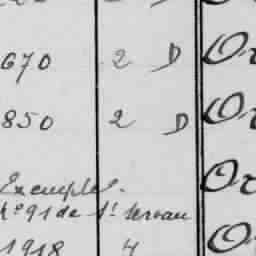 670 2 D Or
850 2 D Or
Or
Exemples.
n° 91 de St Servan
1918 4 O